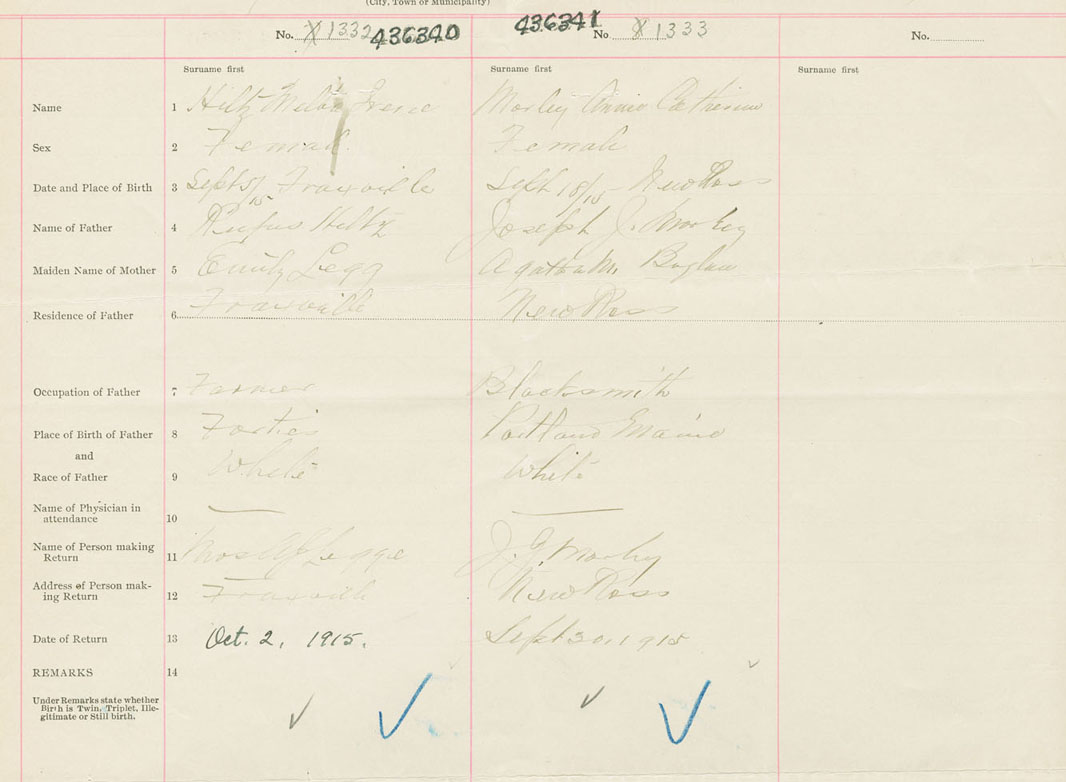 (City, Town or Municipality)
No. X 1332 436340
436341 No X 1333
No.
Surname first Surname first Surname first
Name 1 Hiltz Irene Morley Annie Catherine
Sex 2 Female Female
Date and Place of Birth 3 Sept 5/15 Fraxville Sept 18/15 New Ross
Name of Father 4 Rufus Hiltz Joseph J. Morley
Maiden Name of Mother 5 Emily Legg Agatha M.
Residence of Father 6 Fraxville New Ross
Occupation of Father 7 Farmer Blacksmith
Place of Birth of Father 8 Forties Portland Maine
and
Race of Father 9 White White
Name of Physician in
attendance 10 — —
Name of Person making
Return 11 Legge J. J. Morley
Address of Person mak-
ing Return 12 Fraxville New Ross
Date of Return 13 Oct. 2, 1915. Sept 30, 1915
REMARKS 14
Under Remarks state whether
Birth is Twin, Triplet, Ille-
gitimate or Still birth.